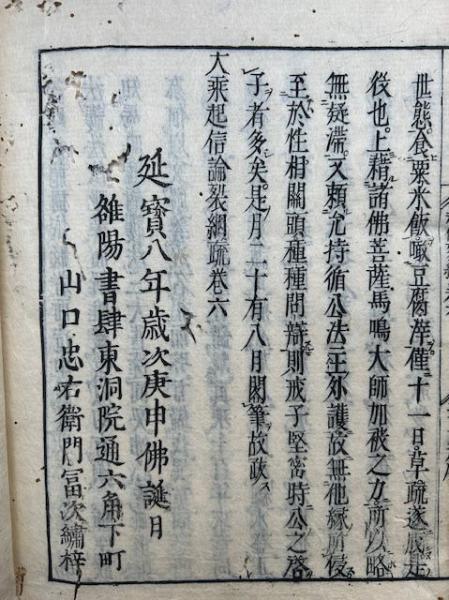 世態食粟米飯噉豆腐滓僅十一日草疏遂成是
後也上藉諸佛菩薩馬鳴大師加被之力所以略
無疑滯又賴允持循公法主外護故無他緣
至於性相關頭種種問辯則戒子堅密時公之啓
予者多矣是月二十有八月閣筆故跋
大乘起信論裂網疏卷六
延寶八年歲次庚申佛誕月
雒陽書肆東洞院通六角下町
山口忠右衛門冨次繡梓